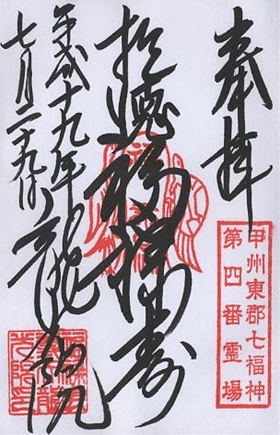 奉拝
甲州東郡七福神
第四番霊場
福禄寿
平成十九年
七月二十九日